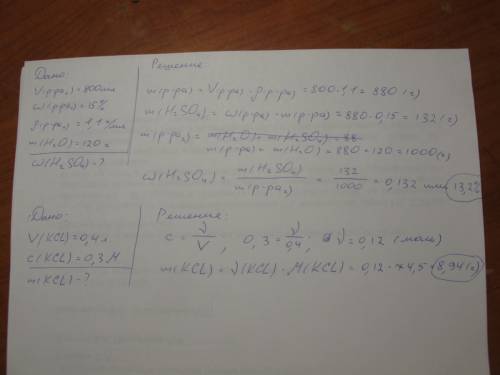 Дано:
V(р-ра₁) = 800мл
ω(р-ра₁) = 15%
ρ(р-ра₁) = 1,1 г/мл
m(H₂O) = 120 г
ω(H₂SO₄) - ?
Решение:
m(р-ра) = V(р-ра) · ρ(р-ра) = 800·1,1 = 880 (г)
m(H₂SO₄) = ω(р-ра) · m(р-ра) = 880·0,15 = 132 (г)
m(р-ра₂) = m(H₂O) + m(H₂SO₄) = 88
m(р-ра) + m(H₂O) = 880 + 120 = 1000 (г)
ω(H₂SO₄) = m(H₂SO₄) / m(р-ра₂) = 132 / 1000 = 0,132 или 13,2%
Дано:
V(KCL) = 0,4 л
c(KCL) = 0,3 М
m(KCL) - ?
Решение:
c = ν / V ; 0,3 = ν / 0,4 ; ν = 0,12 (моль)
m(KCL) = ν(KCL) · M(KCL) = 0,12 · 74,5 = 8,94 (г)